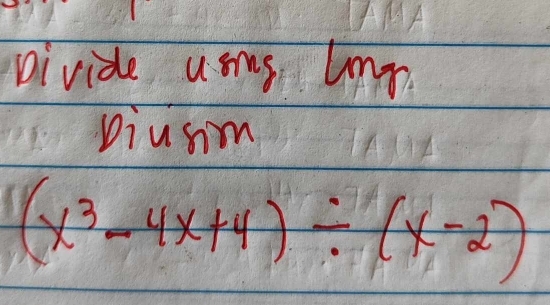 Divide using long
Diusim
(x³ - 4x + 4) ÷ (x - 2)